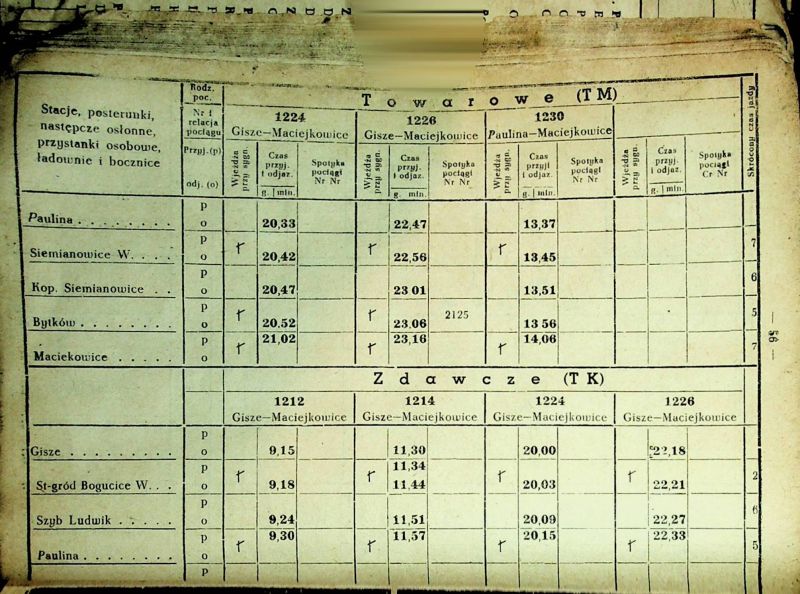 Towarowe (TM)
Stacje, posterunki,
następcze osłonne,
przystanki osobowe,
ładownie i bocznice
Rodz.
poc.
Nr i
relacja
pociągu
Przyj. (p)
odj. (o)
1224 1226 1230
Gisze—Maciejkowice Gisze—Maciejkowice Paulina—Maciejkowice
Wjeżdża przy sygn. Czas przyj. i odjaz. g. | min. Spotyka pociągi Nr Nr
Wjeżdża przy sygn. Czas przyj. i odjaz. g. min. Spotyka pociągi Nr Nr
Wjeżdża przy sygn. Czas przyj. i odjaz. g. | min. Spotyka pociągi Nr Nr
Wjeżdża przy sygn. Czas przyj. i odjaz. g. | min. Spotyka pociągi Cr Nr
Skrócony czas jazdy
p
Paulina . . . . . . . . o 20,33 22,47 13,37
p
Siemianowice W. . . . o 20,42 22,56 13,45 7
p
Kop. Siemianowice . . o 20,47 23 01 13,51 6
p
Bytków . . . . . . . . o 20.52 23.06 2125 13 56 5
p 21,02 23,16 14,06
Maciekowice . . . . . o 7
Zdawcze (TK)
1212 1214 1224 1226
Gisze—Maciejkowice Gisze—Maciejkowice Gisze—Maciejkowice Gisze—Maciejkowice
p
Gisze . . . . . . . . . o 9,15 11,30 20,00 22,18
p 11,34
St-gród Bogucice W. . . o 9,18 11,44 20,03 22,21 2
p
Szyb Ludwik . . . . . o 9,24 11,51 20,09 22,27 6
p 9,30 11,57 20,15 22,33
Paulina . . . . . . . . o 5
p
— 56 —